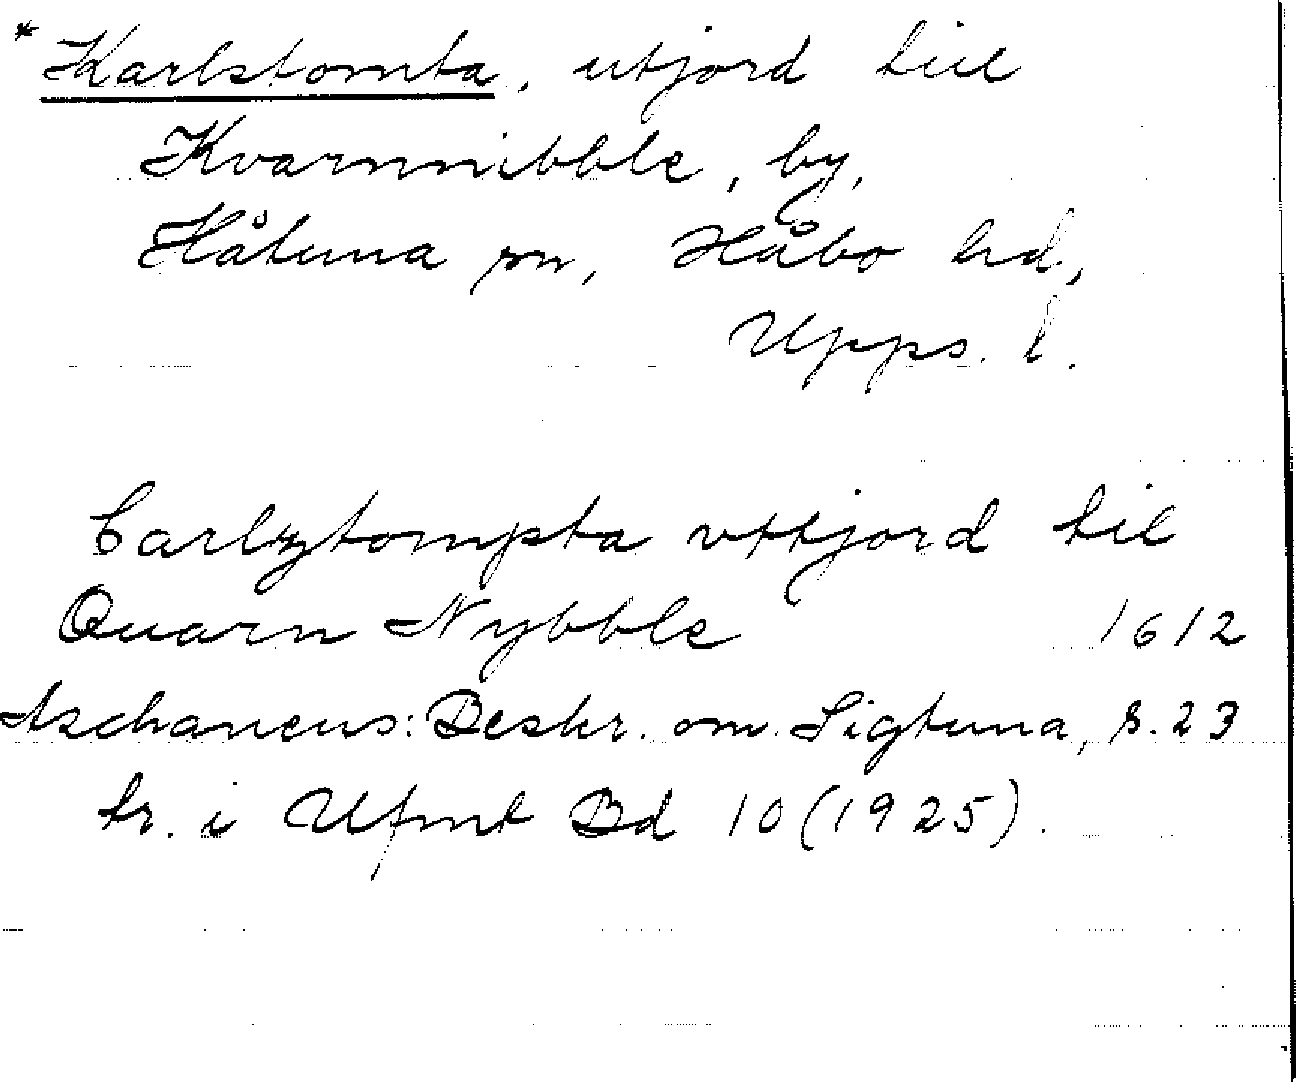 *Karlstomta, utjord till
Kvarnnibble, by,
Håtuna sn, Håbo hd,
Upps. l.
Carlztompta vttjord til
Quarn Nybble 1612
Aschaneus: Beskr. om Sigtuna, s. 23
tr. i Ufmt Bd 10 (1925).